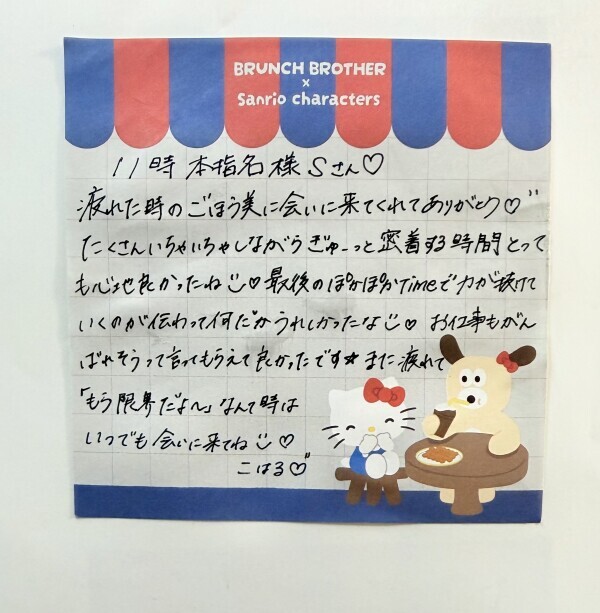 BRUNCH BROTHER
×
Sanrio characters
11時 本指名様 Sさん♡
疲れた時のごほう美に会いに来てくれてありがとう♡"
たくさんいちゃいちゃしながらぎゅーっと密着する時間とって
も心地良かったね☺♡最後のぽかぽかTimeで力が抜けて
いくのが伝わって何だかうれしかったな☺♡ お仕事もがん
ばれそうって言ってもらえて良かったです☆また疲れて
「もう限界だよ〜」なんて時は
いつでも会いに来てね☺♡
こはる♡"